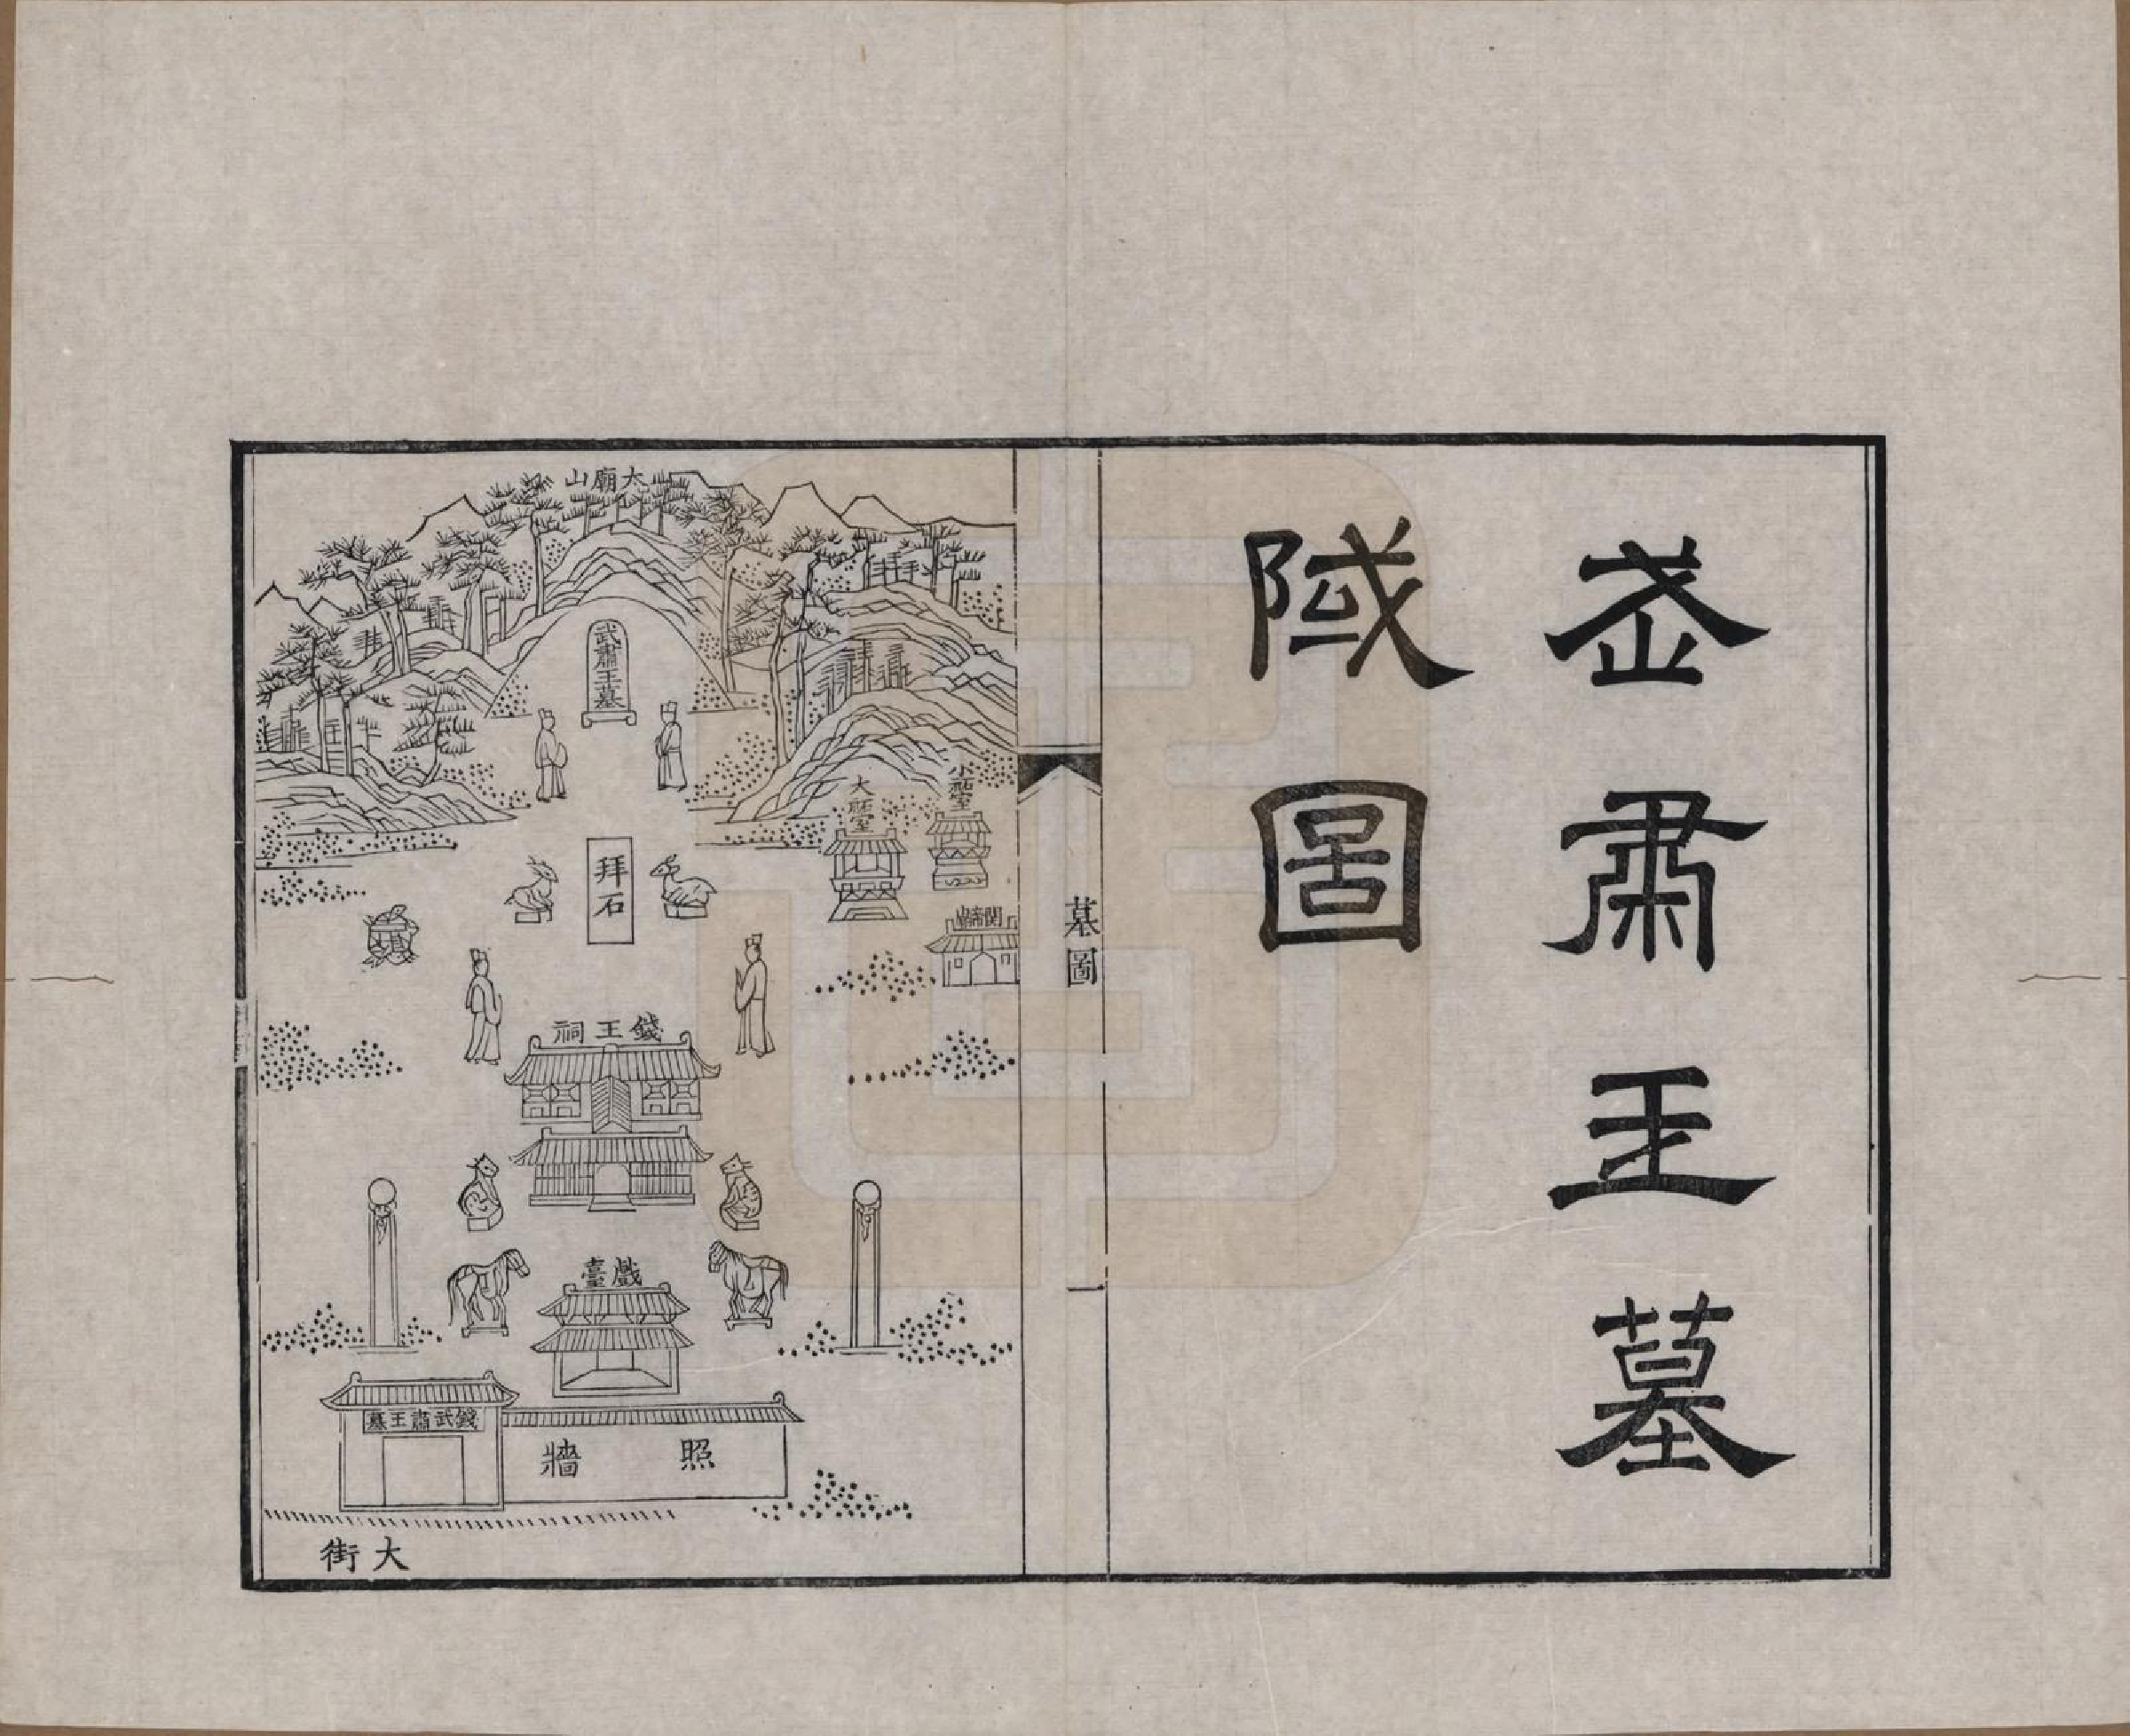 武肅王墓
域圖
墓圖
一
太廟山
武肅王墓
小祏室
大祏室
拜石
關帝廟
錢王祠
戲臺
錢武肅王墓
照牆
大街